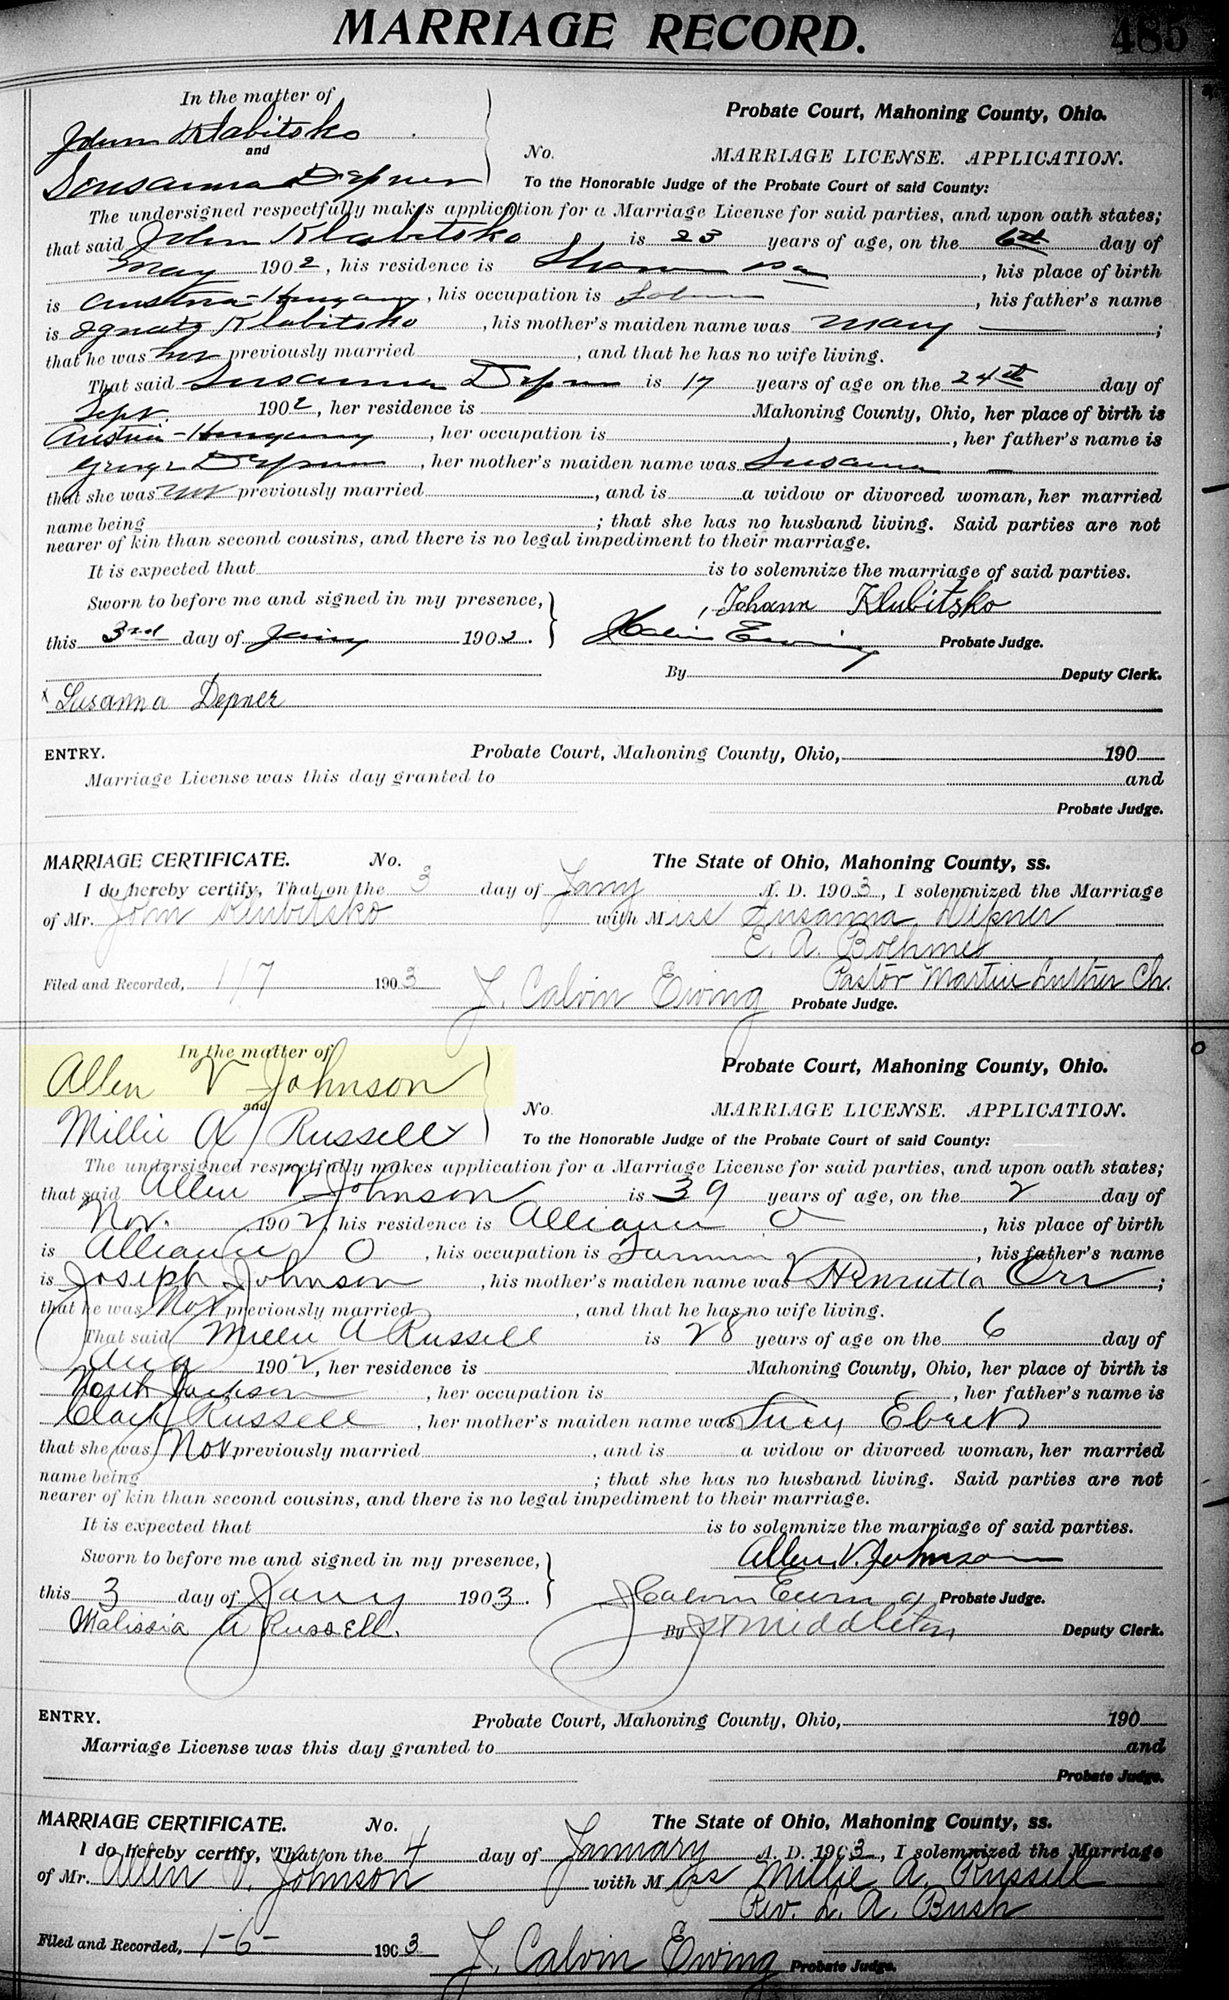 MARRIAGE RECORD. 485
In the matter of
John Klabitsko
and
Sousanna Depner
Probate Court, Mahoning County, Ohio.
No. MARRIAGE LICENSE. APPLICATION.
To the Honorable Judge of the Probate Court of said County:
The undersigned respectfully makes application for a Marriage License for said parties, and upon oath states;
that said John Klabitsko is 23 years of age, on the 6th day of
May 1902, his residence is Sharon Pa, his place of birth
is Austria-Hungary, his occupation is Laborer, his father's name
is Ignatz Klabitsko, his mother's maiden name was Mary — ;
that he was not previously married, and that he has no wife living.
That said Susanna Depner is 17 years of age on the 24th day of
Sept 1902, her residence is Mahoning County, Ohio, her place of birth is
Austria-Hungary, her occupation is, her father's name is
George Depner, her mother's maiden name was Susanna —
that she was not previously married, and is a widow or divorced woman, her married
name being ; that she has no husband living. Said parties are not
nearer of kin than second cousins, and there is no legal impediment to their marriage.
It is expected that is to solemnize the marriage of said parties.
Sworn to before me and signed in my presence, Johann Klubitsko
this 3rd day of Jany 1903. J Calvin Ewing Probate Judge.
By Deputy Clerk.
x Susanna Depner
ENTRY. Probate Court, Mahoning County, Ohio, 190
Marriage License was this day granted to and
Probate Judge.
MARRIAGE CERTIFICATE. No. The State of Ohio, Mahoning County, ss.
I do hereby certify, That on the 3 day of Jany A. D. 1903, I solemnized the Marriage
of Mr. John Klubitsko with Miss Susanna Depner
E. A. Boehme
Pastor Martin Luther Ch.
Filed and Recorded, 1/7 1903 J. Calvin Ewing Probate Judge.
In the matter of
Allen V Johnson
and
Millie A Russell
Probate Court, Mahoning County, Ohio.
No. MARRIAGE LICENSE. APPLICATION.
To the Honorable Judge of the Probate Court of said County:
The undersigned respectfully makes application for a Marriage License for said parties, and upon oath states;
that said Allen V Johnson is 39 years of age, on the 2 day of
Nov. 1902, his residence is Alliance O, his place of birth
is Alliance O, his occupation is Farming, his father's name
is Joseph Johnson, his mother's maiden name was Henrietta Orr ;
that he was Not previously married, and that he has no wife living.
That said Millie A Russell is 28 years of age on the 6 day of
Aug 1902, her residence is Mahoning County, Ohio, her place of birth is
North Jackson, her occupation is, her father's name is
Clark Russell, her mother's maiden name was Lucy Ebert
that she was Not previously married, and is a widow or divorced woman, her married
name being ; that she has no husband living. Said parties are not
nearer of kin than second cousins, and there is no legal impediment to their marriage.
It is expected that is to solemnize the marriage of said parties.
Sworn to before me and signed in my presence, Allen V. Johnson
this 3 day of Jany 1903. J Calvin Ewing Probate Judge.
Malissia A Russell. By Middleton Deputy Clerk.
ENTRY. Probate Court, Mahoning County, Ohio, 190
Marriage License was this day granted to and
Probate Judge.
MARRIAGE CERTIFICATE. No. The State of Ohio, Mahoning County, ss.
I do hereby certify, That on the 4 day of January A. D. 1903, I solemnized the Marriage
of Mr. Allen V. Johnson with Miss Millie A. Russell
Rev. L. A. Bush
Filed and Recorded, 1-6- 1903 J. Calvin Ewing Probate Judge.